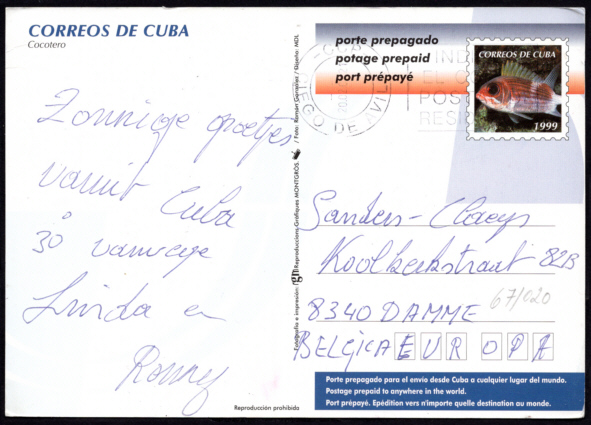 CORREOS DE CUBA
Cocotero
Zonnige groetjes
vanuit Cuba
30° vanwege
Linda en
Ronny
Reproducción prohibida
Fotografía e impresión: Reproduccions Gràfiques MONTGRÒS / Foto: Ramón González / Diseño: MDL
porte prepagado
potage prepaid
port prépayé
CORREOS DE CUBA
1999
CIEGO DE AVILA
Sanders-Claeys
Koolkerkstraat 82B
8340 DAMME
67/020
BELGICA EUROPA
Porte prepagado para el envío desde Cuba a cualquier lugar del mundo.
Postage prepaid to anywhere in the world.
Port prépayé. Epédition vers n'importe quelle destination au monde.